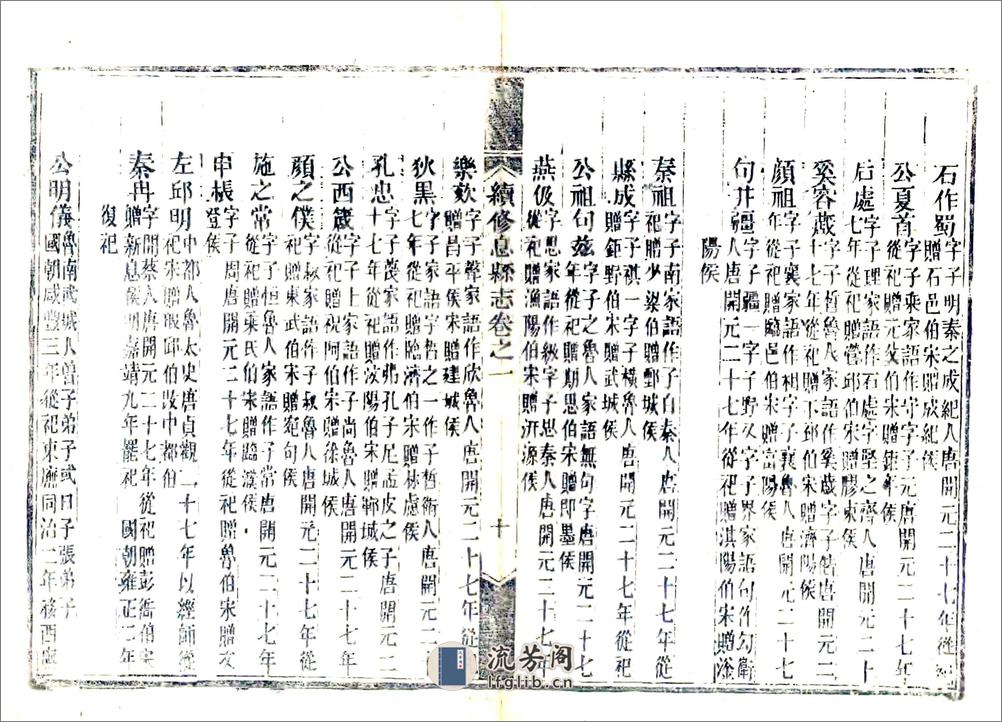 石作蜀字子明秦之成紀人唐開元二十七年從祀
贈石邑伯宋贈成紀侯
公夏首字子乘家語作守字子元唐開元二十七年
從祀贈元父伯宋贈鉅平侯
后處字子理家語作石處字堅之齊人唐開元二十
七年從祀贈營邱伯宋贈膠東侯
奚容蒧字子晳魯人家語作奚蒧字子偕唐開元二
十七年從祀贈下邳伯宋贈濟陽侯
顏祖字子襄家語作相字子襄魯人唐開元二十七
年從祀贈臨邑伯宋贈富陽侯
句井疆字子疆一字子野又字子界家語句作勾衛
人唐開元二十七年從祀贈淇陽伯宋贈滏
陽侯
秦祖字子南家語作子白秦人唐開元二十七年從
祀贈少梁伯宋贈鄄城侯
縣成字子祺一字子橫魯人唐開元二十七年從祀
贈鉅野伯宋贈武城侯
公祖句茲字子之魯人家語無句字唐開元二十七
年從祀贈期思伯宋贈即墨侯
燕伋字思家語作級字子思秦人唐開元二十七年
從祀贈漁陽伯宋贈汧源侯
續修息縣志卷之一
十
樂欬字子聲家語作欣魯人唐開元二十七年從祀
贈昌平侯宋贈建城侯
狄黑字子家語字晳之一作子晳衛人唐開元二十
七年從祀贈臨濟伯宋贈林慮侯
孔忠字子蔑家語作弗孔子兄孟皮之子唐開元二
十七年從祀贈汶陽伯宋贈鄆城侯
公西蒧字子上家語作子尚魯人唐開元二十七年
從祀贈祝阿伯宋贈徐城侯
顏之僕字子叔家語作子叔魯人唐開元二十七年從
祀贈東武伯宋贈宛句侯
施之常字子恒魯人家語作子常唐開元二十七年
從祀贈乘氏伯宋贈臨濮侯
申棖字子周唐開元二十七年從祀贈魯伯宋贈文
登侯
左邱明中都人魯太史唐貞觀二十七年以經師從
祀宋贈瑕邱伯改中都伯
秦冉字開蔡人唐開元二十七年從祀贈彭衙伯宋
贈新息侯明嘉靖九年罷祀　國朝雍正二年
復祀
公明儀魯南武城人曾子弟子或曰子張弟子
國朝咸豐三年從祀東廡同治二年移西廡
流芳閣
lfglib.cn